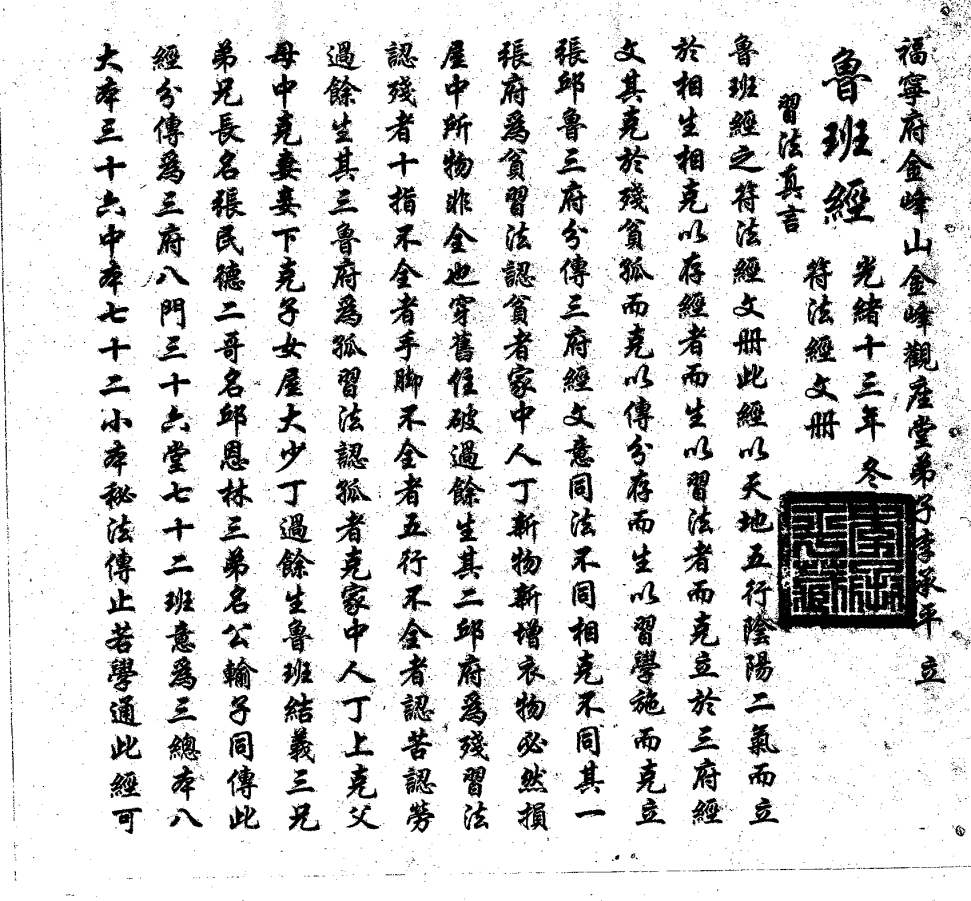 福寧府金峰山金峰觀座堂弟子李承平立
魯班經 光緒十三年冬
習法真言 符法經文册
魯班經之符法經文册此經以天地五行陰陽二氣而立
於相生相克以存經者而生以習法者而克立於三府經
文其克於殘貧孤而克以傳分存而生以習學施而克立
張邱魯三府分傳三府經文意同法不同相克不同其一
張府爲貧習法認貧者家中人丁新物新增衣物必然損
屋中所物非全也穿舊住破過餘生其二邱府爲殘習法
認殘者十指不全者手脚不全者五行不全者認苦認勞
過餘生其三魯府爲孤習法認孤者克家中人丁上克父
母中克妻妾下克子女屋大少丁過餘生魯班結義三兄
弟兄長名張民德二哥名邱恩林三弟名公輸子同傳此
經分傳爲三府八門三十六堂七十二班意爲三總本八
大本三十六中本七十二小本秘法傳止若學通此經可